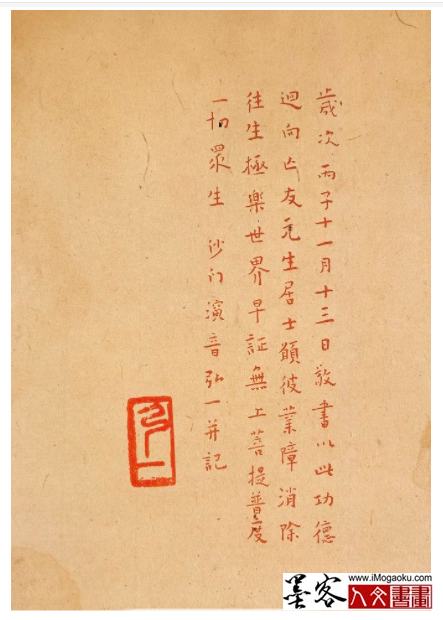 歲次丙子十一月十三日敬書以此功德
迴向亡友秂生居士願彼業障消除
往生極樂世界早証無上菩提普度
一切眾生 沙門演音弘一并記
弘一
墨客 www.iMogaoku.com
人文書畫